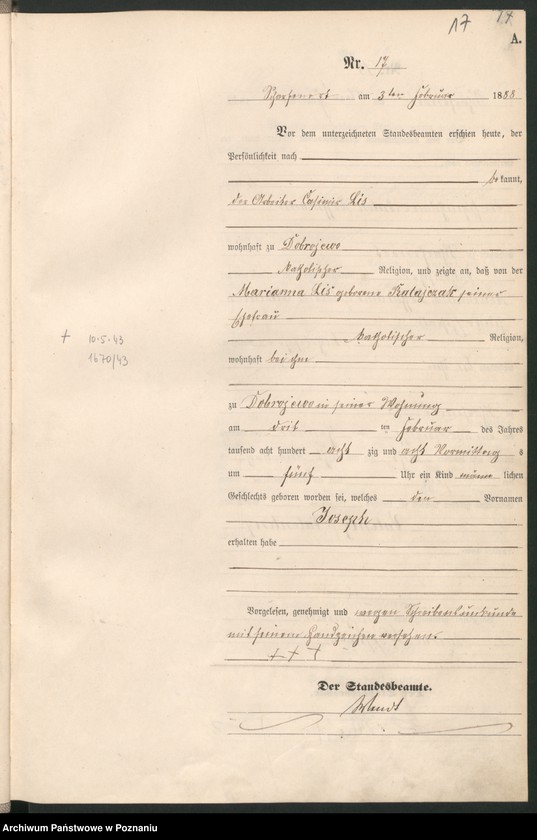 17
17
A.
Nr. 17
Scharfenort am 3ten Februar 1888
Vor dem unterzeichneten Standesbeamten erschien heute, der
Persönlichkeit nach
bekannt,
der Arbeiter Casimir Lis
wohnhaft zu Dobrojewo
katholischer Religion, und zeigte an, daß von der
Marianna Lis geborene Ratajczak seiner
Ehefrau
katholischer Religion,
wohnhaft bei ihm
zu Dobrojewo in seiner Wohnung
am drit ten Februar des Jahres
tausend acht hundert acht zig und acht Vormittag s
um fünf Uhr ein Kind männ lichen
Geschlechts geboren worden sei, welches den Vornamen
Joseph
erhalten habe
+ 10.5.43
1670/43
Vorgelesen, genehmigt und wegen Schreibensunkunde
mit seinem Handzeichen versehen.
+ + +
Der Standesbeamte.
Archiwum Państwowe w Poznaniu